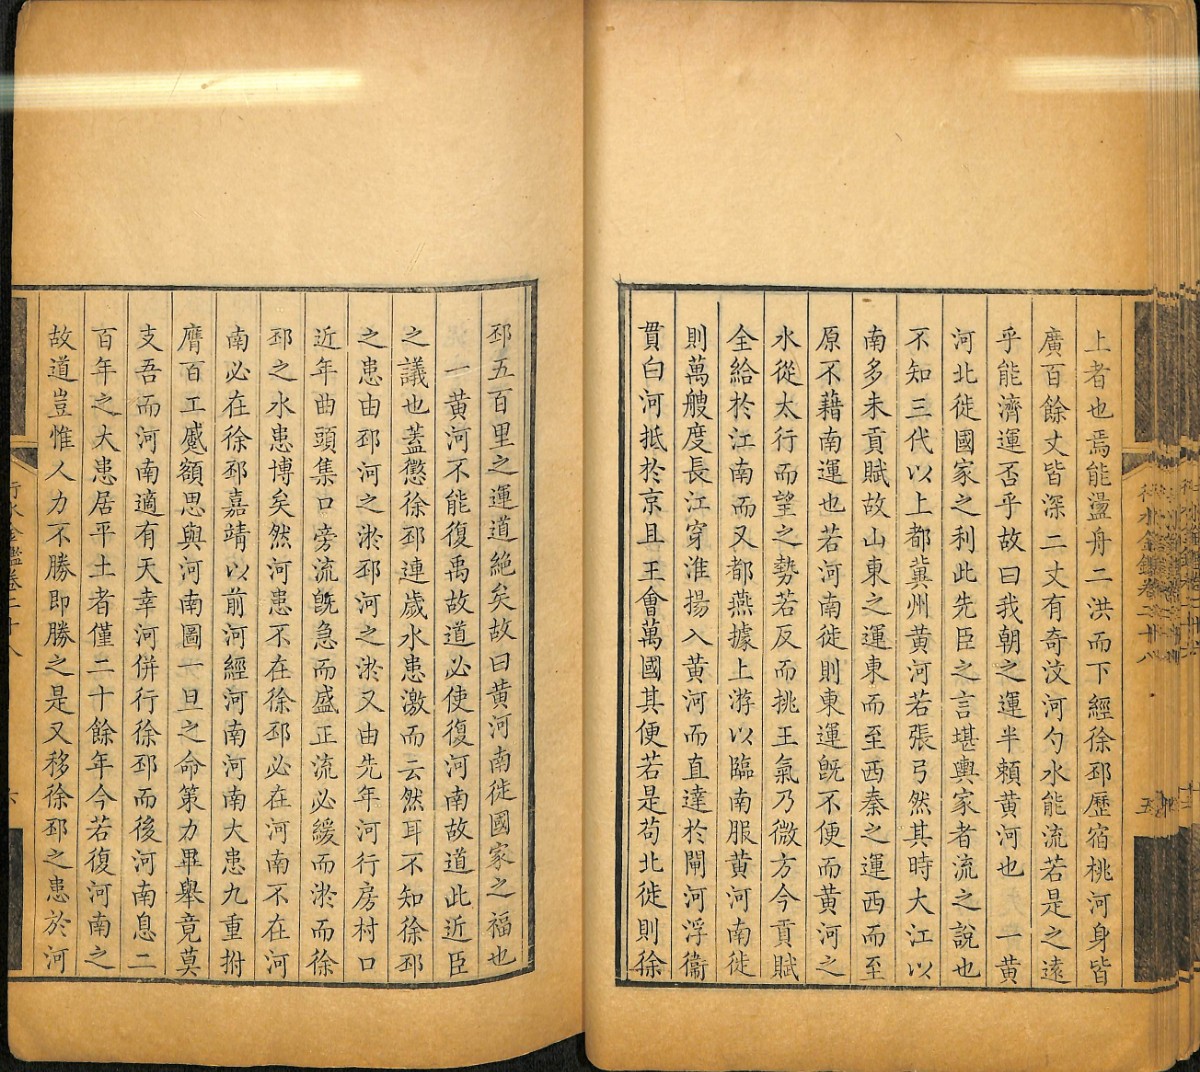 上者也焉能盪舟二洪而下經徐邳歷宿桃河身皆
廣百餘丈皆深二丈有奇汶河勺水能流若是之遠
乎能濟運否乎故曰我朝之運半賴黄河也　一黄
河北徙國家之利此先臣之言堪輿家者流之說也
不知三代以上都冀州黄河若張弓然其時大江以
南多未貢賦故山東之運東而至西秦之運西而至
原不藉南運也若河南徙則東運旣不便而黄河之
水從太行而望之勢若反而挑王氣乃微方今貢賦
全給於江南而又都燕據上游以臨南服黄河南徙
則萬艘度長江穿淮揚入黄河而直達於閘河浮衞
貫白河抵於京且王會萬國其便若是苟北徙則徐
邳五百里之運道絶矣故曰黄河南徙國家之福也
一黄河不能復禹故道必使復河南故道此近臣
之議也蓋懲徐邳連歲水患激而云然耳不知徐邳
之患由邳河之淤邳河之淤又由先年河行房村口
近年曲頭集口旁流旣急而盛正流必緩而淤而徐
邳之水患博矣然河患不在徐邳必在河南不在河
南必在徐邳嘉靖以前河經河南河南大患九重拊
膺百工蹙額思與河南圖一旦之命策力畢舉竟莫
支吾而河南適有天幸河併行徐邳而後河南息二
百年之大患居平土者僅二十餘年今若復河南之
故道豈惟人力不勝即勝之是又移徐邳之患於河
行水金鑑卷二十八
六
行水金鑑卷二十八
五